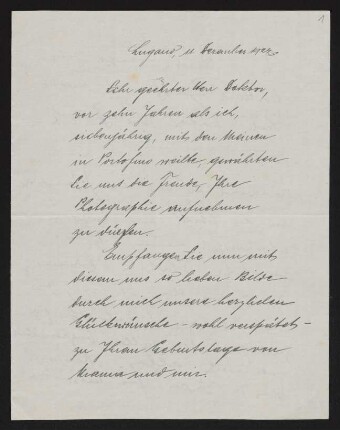 1
Lugano, 11 Dezember 1922.
Sehr geehrter Herr Doktor,
vor zehn Jahren als ich,
siebenjährig, mit den Meinen
in Portofino weilte, gewährten
Sie uns die Freude, Ihre
Photographie aufnehmen
zu dürfen.
Empfangen Sie nun mit
diesem uns so lieben Bilde
durch mich unsere herzlichen
Glückwünsche – wohl verspätet –
zu Ihrem Geburtstage von
Mama und mir.